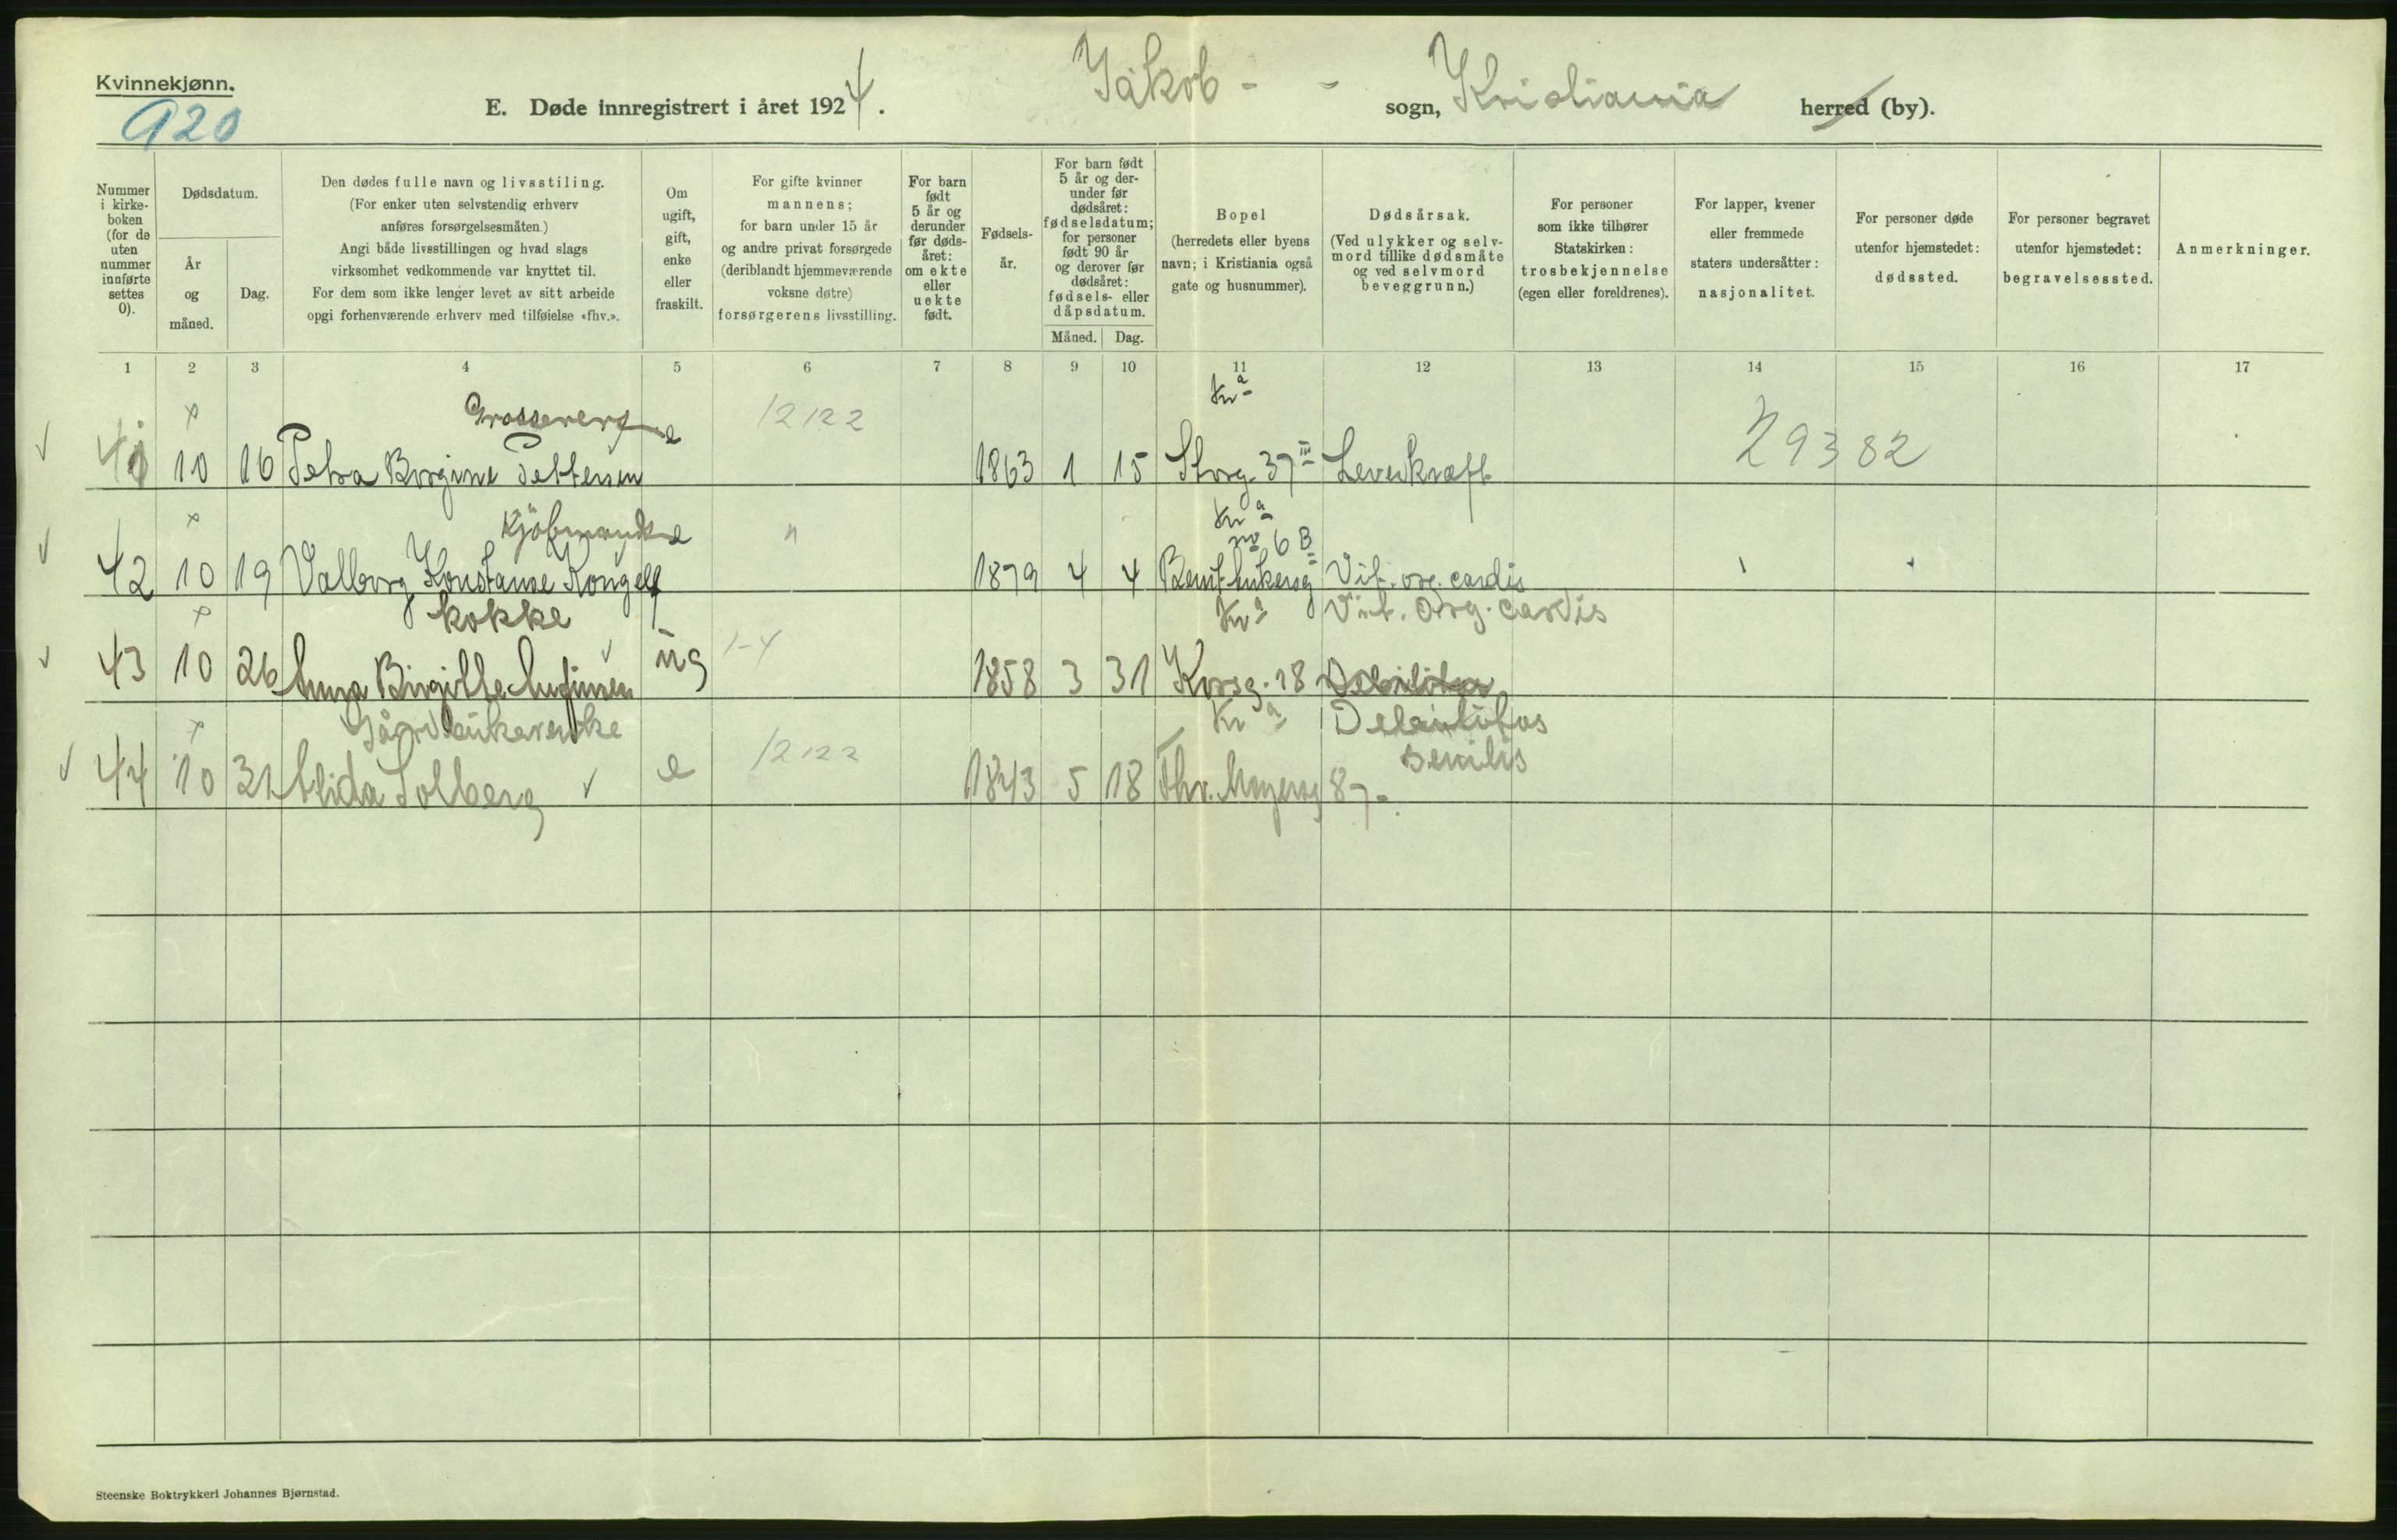 Kvinnekjønn.
920
E. Døde innregistrert i året 1924. Jakob - - sogn, Kristiania herred (by).
Nummer i kirkeboken (for de uten nummer innførte settes 0).
Dødsdatum.
År og måned.
Dag.
Den dødes fulle navn og livsstiling.
(For enker uten selvstendig erhverv
anføres forsørgelsesmåten.)
Angi både livsstillingen og hvad slags
virksomhet vedkommende var knyttet til.
For dem som ikke lenger levet av sitt arbeide
opgi forhenværende erhverv med tilføielse «fhv.».
Om ugift, gift, enke eller fraskilt.
For gifte kvinner
mannens;
for barn under 15 år
og andre privat forsørgede
(deriblandt hjemmeværende
voksne døtre)
forsørgerens livsstilling.
For barn født 5 år og derunder før dødsåret: om ekte eller uekte født.
Fødselsår.
For barn født 5 år og derunder før dødsåret: fødselsdatum; for personer født 90 år og derover før dødsåret: fødsels- eller dåpsdatum.
Måned. Dag.
Bopel
(herredets eller byens
navn; i Kristiania også
gate og husnummer).
Dødsårsak.
(Ved ulykker og selvmord tillike dødsmåte og ved selvmord beveggrunn.)
For personer
som ikke tilhører
Statskirken:
trosbekjennelse
(egen eller foreldrenes).
For lapper, kvener
eller fremmede
staters undersåtter:
nasjonalitet.
For personer døde
utenfor hjemstedet:
dødssted.
For personer begravet
utenfor hjemstedet:
begravelsessted.
Anmerkninger.
1 2 3 4 5 6 7 8 9 10 11 12 13 14 15 16 17
e 12122 Kra
41 10 16 Petra Borgine Pettersen 1863 1 15 Storg. 37 III Leverkræft 29382
Kjøbmands e " Kra
no 6 B
42 10 19 Valborg Konstanse 1879 4 4 Vit. org. cardis
kokke Kra Vit. Org. cardis
43 10 26 Anna Birgitte ug 1-4 1858 3 31 Korsg. 18
Kra
senilis
44 10 31 Alida Solberg e 12122 1843 5 18 Thv. Meyersg 87.
Steenske Boktrykkeri Johannes Bjørnstad.